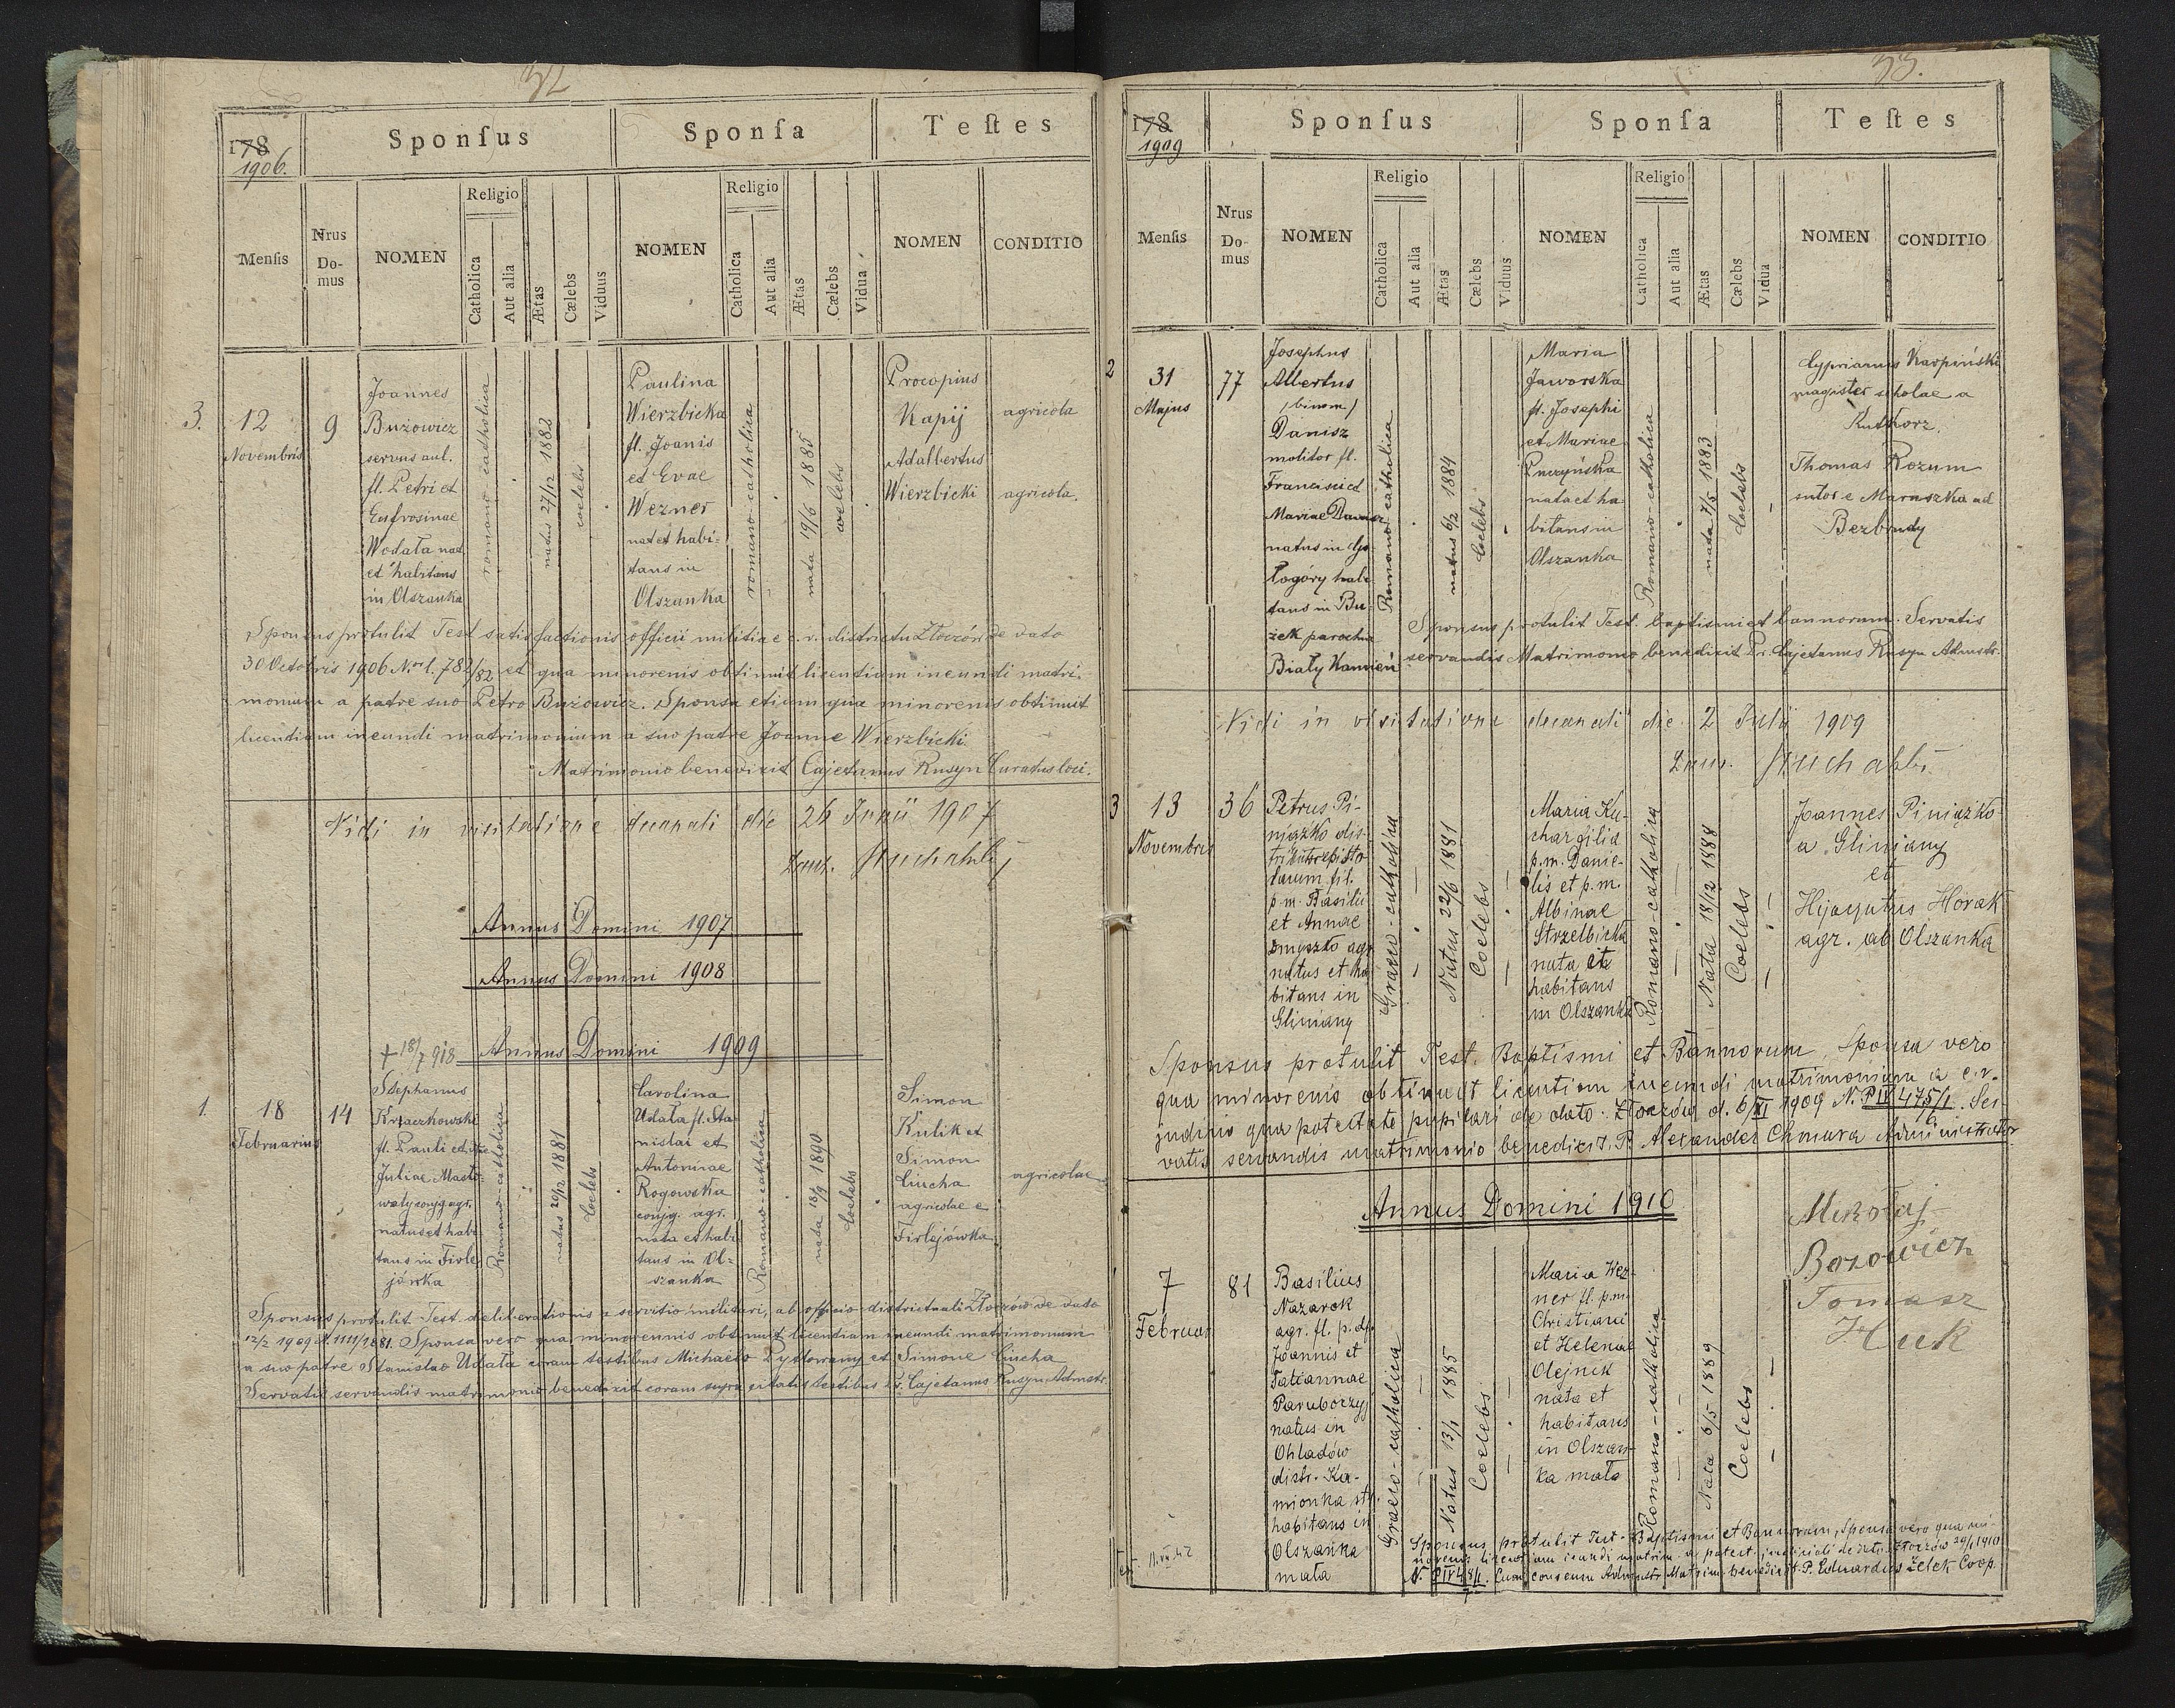 32
178
1906.
Sponſus
Sponſa
Teſtes
Menſis
Nrus Do-mus
NOMEN
Religio
Catholica
Aut alia
Ætas
Cælebs
Viduus
NOMEN
Religio
Catholica
Aut alia
Ætas
Cælebs
Vidua
NOMEN
CONDITIO
3.
12
Novembris
9
Joannes
Buzowicz
servus aul.
fl. Petri et
Eufrosinae
Wodała nat.
et habitans
in Olszanka
romano-catholica
natus 27/12 1882
coelebs
Paulina
Wierzbicka
fl. Joanis
et Evae
Wezner
nat et habi-
tans in
Olszanka
romano-catholica
nata 19/6 1885
coelebs
Procopius
Kapij
Adalbertus
Wierzbicki
agricola
agricola.
Sponsus protulit Test. satisfactionis officii militiae c.r. districtu Złoczów de dato
30 Octobris 1906 N. 782/82 et qua minorenis obtinuit licentiam ineundi matri-
monium a patre suo Petro Buzowicz. Sponsa etiam qua minorenis obtinuit
licentiam ineundi matrimonium a suo patre Joanne Wierzbicki.
Matrimonio benedixit Cajetanus Rusyn Curatus loci.
Vidi in visitatione decanali die 26 Junii 1907
Annus Domini 1907
Annus Domini 1908
+ 18/7 918
Annus Domini 1909
1.
18
Februarius
14
Stephanus
Kraczkowski
fl. Pauli et
Juliae Masło-
waty conjg agr.
natus et habi-
tans in Firle-
jówka
Romano-catholica
natus 20/12 1881
Coelebs
Carolina
Udała fl. Sta-
nislai et
Antoninae
Rogowska
conjg. agr.
nata et habi-
tans in Ol-
szanka
Romano-catholica
nata 18/9 1890
Coelebs
Simon
Kulik et
Simon
Ciucha
agricolae e
Firlejówka
agricolae
Sponsus protulit Test. deliberationis a servitio militari, ab officio districtuali Złoczów de dato
12/2 1909 N. 1111/1881. Sponsa vero qua minorennis obtinuit licentiam ineundi matrimonium
a suo patre Stanislao Udała coram testibus Michaelo et Simone Ciucha
Servatis servandis matrimonio benedixit coram supra citatis testibus Pr. Cajetanus Rusyn Admstr.
33.
178
1909
Sponſus
Sponſa
Teſtes
Menſis
Nrus Do-mus
NOMEN
Religio
Catholica
Aut alia
Ætas
Cælebs
Viduus
NOMEN
Religio
Catholica
Aut alia
Ætas
Cælebs
Vidua
NOMEN
CONDITIO
2
31
Majus
77
Josephus
Albertus
/binom/
Danisz
molitor fl.
Francisci et
Mariae Danisz
natus in Go-
łogóry habi
tans in Bu-
żek parochia
Biały Kamień
Romano-catholica
natus 6/2 1884
Coelebs
Maria
Jaworska
fl. Josephi
et Mariae
Puczyńska
nata et ha
bitans in
Olszanka
Romano-catholica
nata 7/5 1883
Coelebs
Cyprianus Karpiński
magister scholae a
Thomas Rozum
sutor e Maruszka ad
Bezbrudy
Sponsus protulit Test. baptismi et bannorum. Servatis
servandis Matrimonio benedixit Pr. Cajetanus Rusyn Admstr.
Vidi in visitatione decanali die 2 Julii 1909
3
13
Novembris
36
Petrus Pi-
niążko dis-
tributor episto
larum fil.
p.m. Basilii
et Annae
Smyszło agr.
natus et ha
bitans in
Gliniany
Graeco-catholica
Natus 22/6 1881
Coelebs
Maria Ku-
char filia
p.m. Danie-
lis et p.m.
Albinae
Strzelbicka
nata et
habitans
in Olszanka
Romano-catholica
Nata 18/12 1888
Coelebs
Joannes Piniążko
a Gliniany
et
Hijacyntus Horak
agr. ab Olszanka
Sponsus protulit Test. Baptismi et Bannorum, Sponsa vero
qua minorenis obtinuit licentiam ineundi matrimonium a c.r.
judicio qua potestate pupilari de dato: Złoczów d. 6/XI 1909 N. P IV 475/1. Ser-
vatis servandis matrimonio benedixit P. Alexander Chmura Administrator
Annus Domini 1910
7
Februar
81
Basilius
Nazarek
agr. fl. p.d.
Joannis et
Tatiannae
Paruborzyj
natus in
Ohladów
distr. Ka-
mionka str.
habitans in
Olszanka
mała
Graeco-catholica
Natus 13/1 1885
Coelebs
Maria Wez-
ner fl. p.m.
Christiani
et Helenae
Olejnik
nata et
habitans
in Olszan-
ka mała
Romano-catholica
Nata 6/5 1889
Coelebs
Mikołaj
Bozowicz
Tomasz
Huk
Sponsus protulit Test. Baptismi et Bannorum, Sponsa vero qua mi-
norenis licentiam ineundi matrim. a potest. judiciali de dato Złoczów 29/1 1910
N. P IV 48/1. Cum consensu Administr. Matrim. benedixit P. Eduardus Żelek Coop.